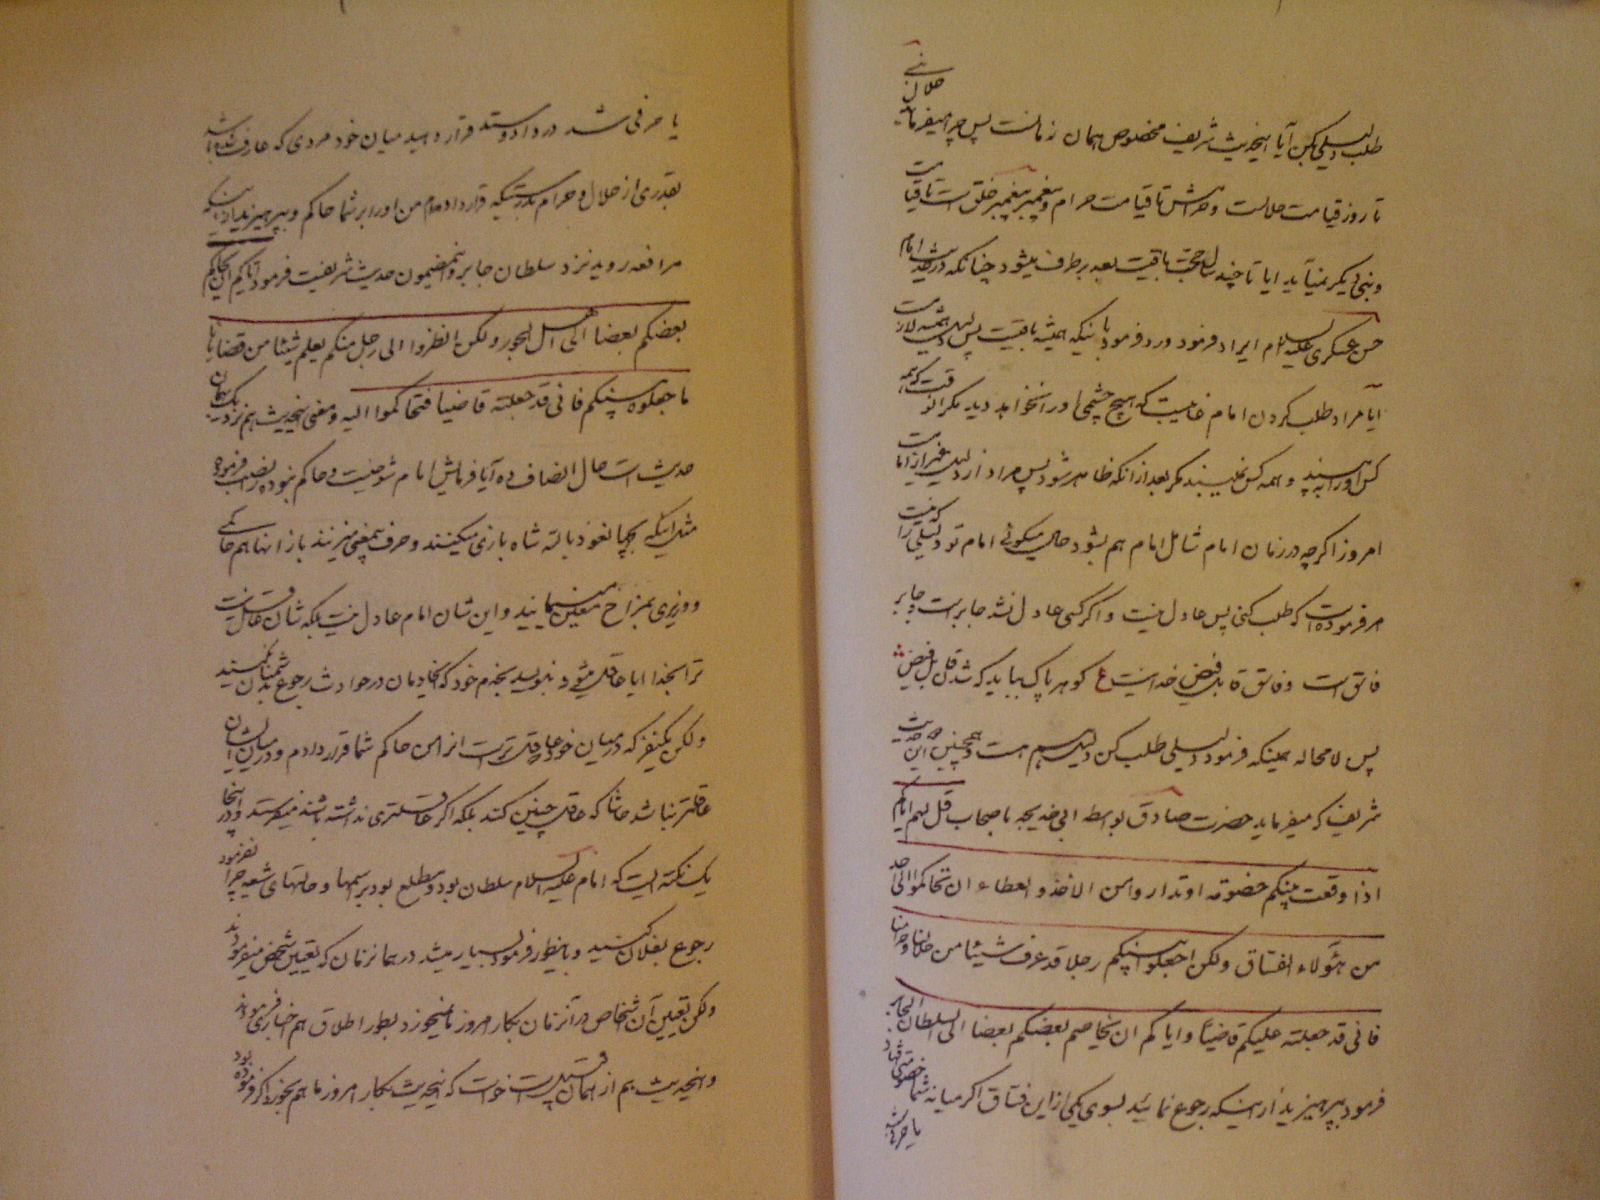 طلب دلیلی بکن آیا اینحدیث شریف مخصوص همان زمانست پس چرا میفرماید حلال نبی
تا روز قیامت حلالست و حرامش تا قیامت حرام و پیغمبر پیغمبر خلق است تا قیامت
و نبی دیگر نمیآید ایا تا چند سال حجت باقیست بعد برطرف میشود چنانکه در حدیث امام
حسن عسکری علیه السلام ایراد فرمود ورد فرمود باینکه همیشه باقیست پس دلیل همیشه لازمست
ایا مراد طلب کردن امام غایبست که هیچ چشمی اورا نخواهد دید مگر انوقت که همه
کس اورا ببینند و همه کس نمیبینند مگر بعد از انکه ظاهر شود پس مراد از دلیل غیر از امامست
امروز اگرچه در زمان امام شامل امام هم بشود حال میگوئی امام تو دلیلی را که نیست
امر فرموده است که طلب کنی پس عادل نیست و اگر کسی عادل نشد جابر است و جابر
فاسق است و فاسق قابل فیض خدا نیست ع گوهر پاک بباید که شود قابل فیض
پس لامحاله همینکه فرمود دلیلی طلب کن دلیل هم هست و همچنین این حدیث
شریف که میفرماید حضرت صادق بواسطه ابی خدیجه باصحاب قل لهم ایاکم
اذا وقعت بینکم خصومة او تدار وامن الاخذ و العطاء ان تحاکموا الی احد
من هؤلاء الفساق ولکن اجعلوا بینکم رجلا قد عرف شیئا من حلالنا و حرامنا
فانی قد جعلته علیکم قاضیا و ایاکم ان یخاصم بعضکم بعضا الی السلطان الجابر
فرمود بپرهیزید از اینکه رجوع نمائید بسوی یکی از این فساق اگر میانه شما خصومتی افتاد
یا حرفی شد در داد و ستد قرار دهید میان خود مردی که عارف شده باشد
بقدری از حلال و حرام بدرستیکه قرار دادهام من اورا بر شما حاکم و بپرهیزید از اینکه
مرافعه روید نزد سلطان جابر و باینمضمون حدیث شریفیست فرمود ایاکم ان یحاکم
بعضکم بعضا الی اهل الجور ولکن انظروا الی رجل منکم یعلم شیئا من قضایانا
فاجعلوه بینکم فانی قد جعلته قاضیا فتحاکموا الیه و معنی اینحدیث هم نزدیک بهمان
حدیث است حال انصاف ده آیا فرمایش امام شوخیست و حاکم نبوده نصب فرموده
مثل اینکه بچها نعوذ بالله شاه بازی میکنند و حرف بیمعنی میزنند باز انها هم حاکمی
و وزیری بمزاح معین مینمایند و این شان امام عادل نیست بلکه شان عاقل نیست
ترا بخدا ایا عاقل میشود بنویسد بخدم خود که بخادمان در حوادث رجوع بدشمنان نکنید
ولکن بکنیز که درمیان خود عاقلتر است انرا من حاکم شما قرار دادم و در میان ایشان
عاقلتر نباشد حاشا که عاقل چنین کند بلکه اگر عاقلتری نداشته باشند نمیفرستد و در اینجا
یک نکته ایست که امام علیه السلام سلطان بود و مطلع بود بر اسمها و حالتهای شیعه چرا نفرمود
رجوع بفلان کنید و باینطور فرمود بسیار میشد در همانزمان که تعیین شخص میفرمودند
ولکن تعیین آن اشخاص در آنزمان بکار امروز ما نمیخورد بطور اطلاق هم اخبار فرمودند
و اینحدیث هم از همان قبیل است خواست که اینحدیث بکار امروز ما هم بخورد اگر فرموده بود